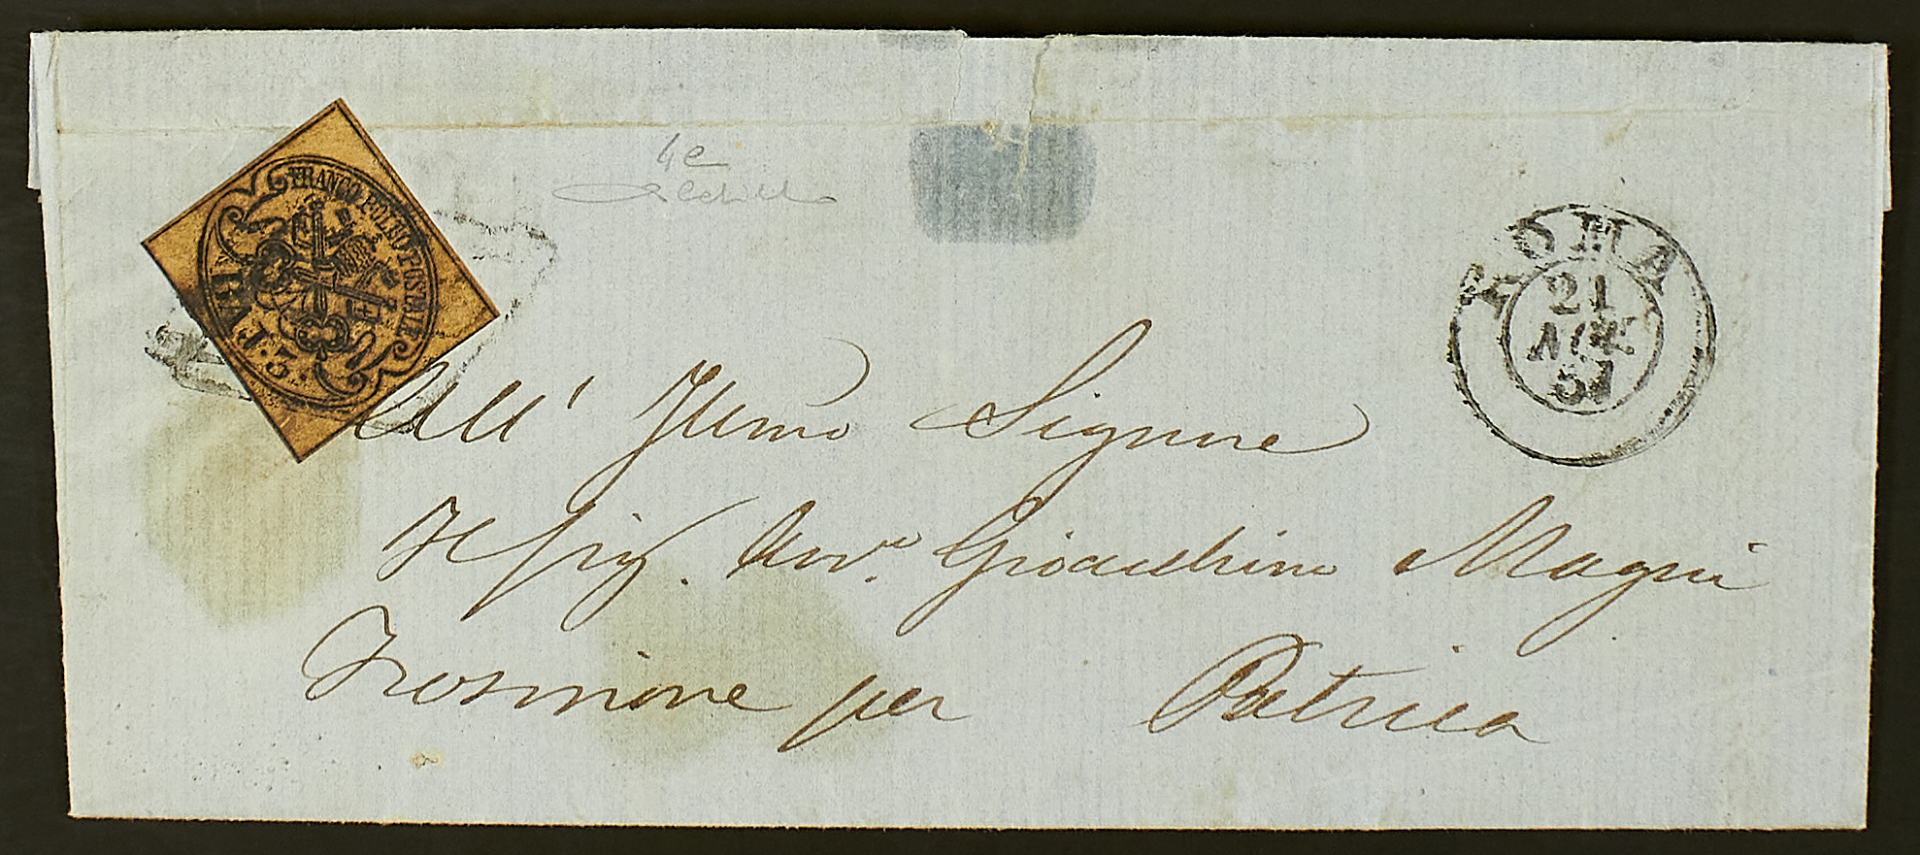 FRANCO BOLLO POSTALE
BAJ. 3.
4c
ROMA
21
AGO
57
All' Illmo Signore
Il Sig. Avv. Gioacchino Magni
Frosinone per Patrica